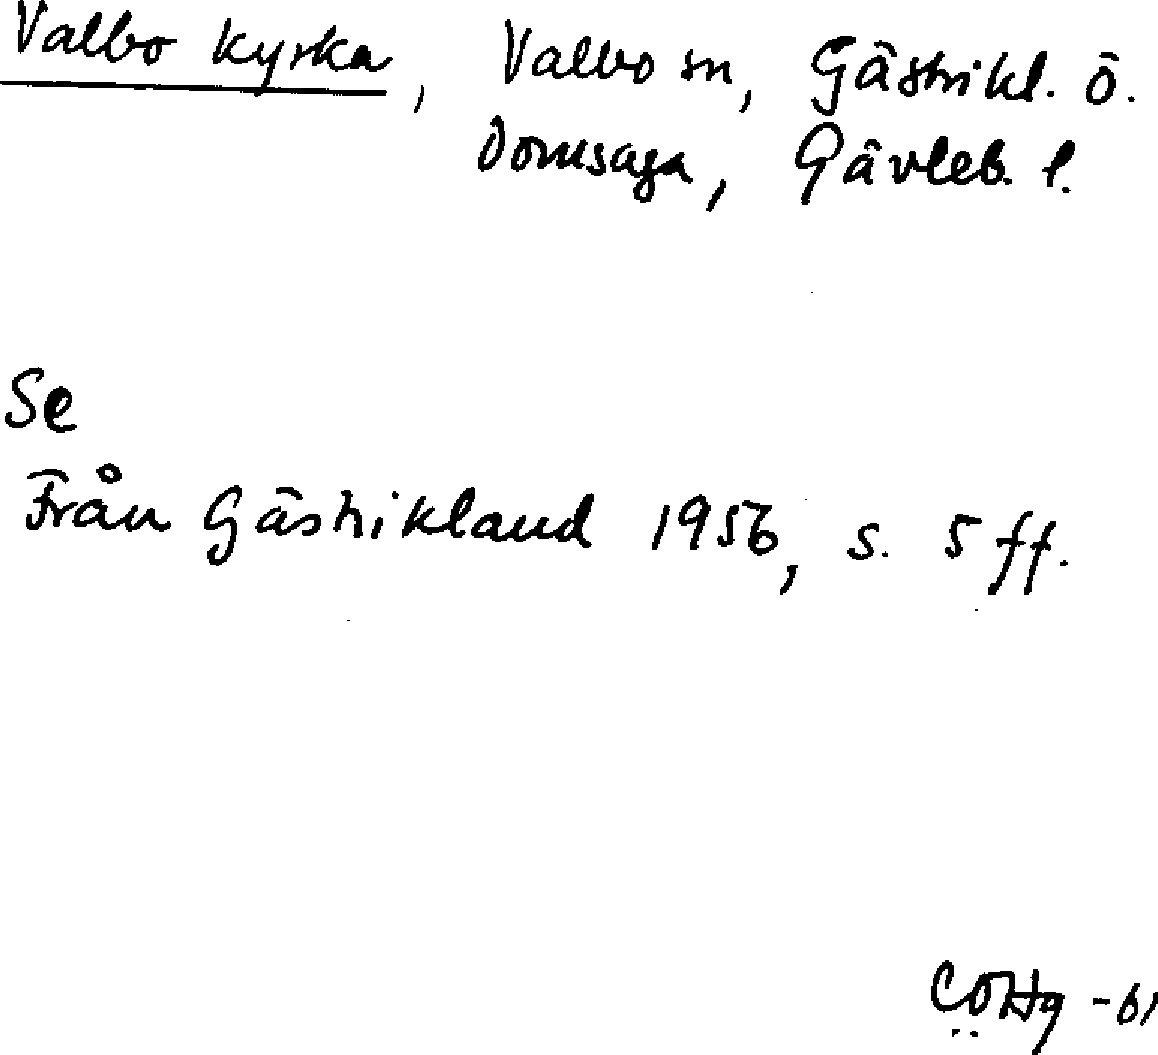 Valbo kyrka, Valbo sn, Gästrikl. ö.
Domsaga, Gävleb. l.
Se
Från Gästrikland 1956, s. 5 ff.
CÖHg -61